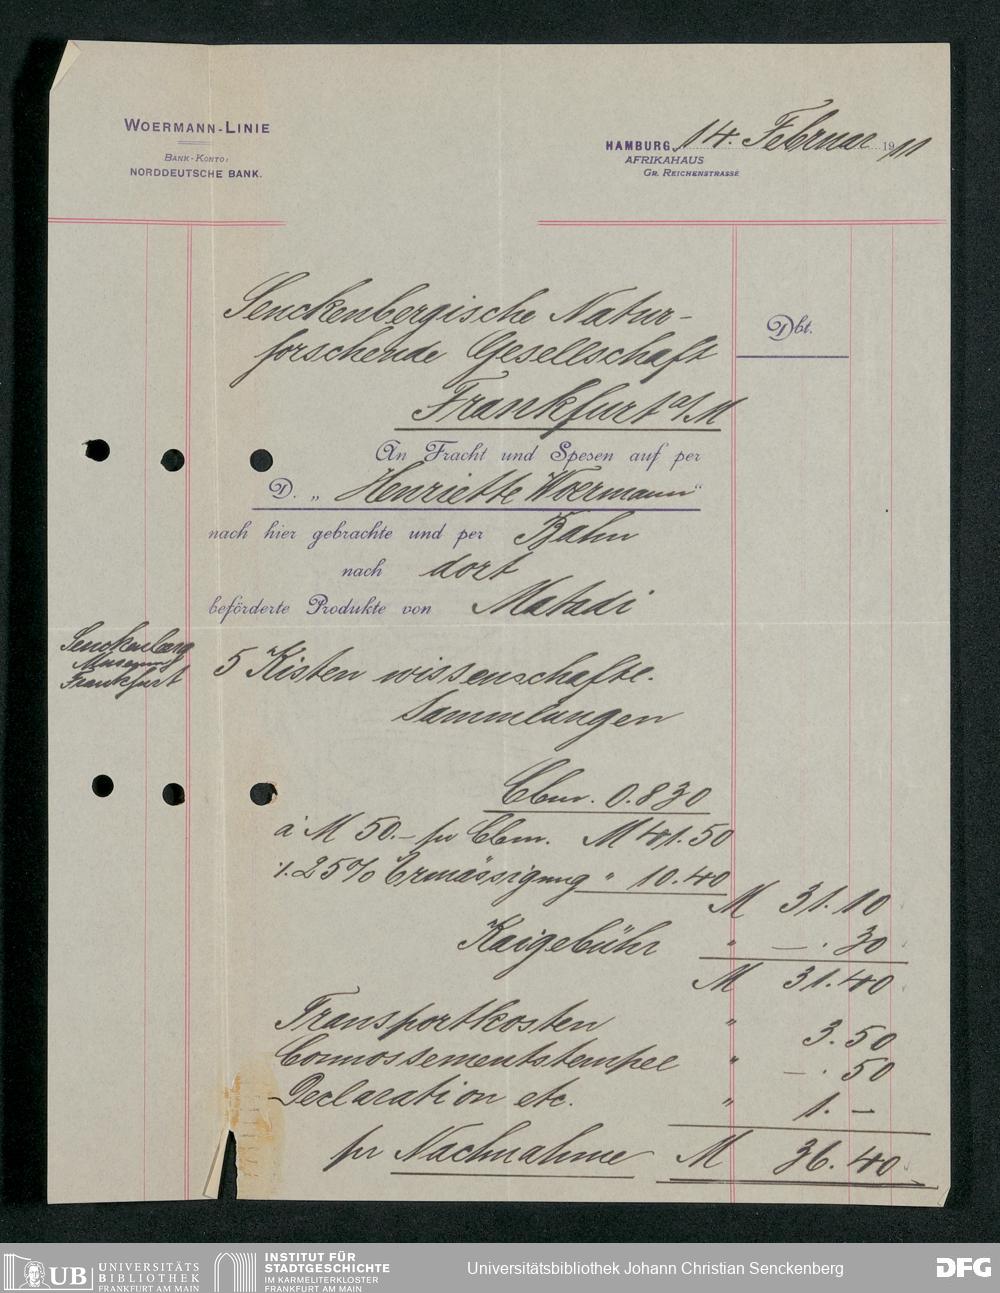 WOERMANN-LINIE
BANK-KONTO:
NORDDEUTSCHE BANK.
HAMBURG, 14. Februar 1911
AFRIKAHAUS
GR. REICHENSTRASSE
Senckenbergische Natur-
forschende Gesellschaft
Frankfurt a/M
Dbt.
An Fracht und Spesen auf per
D. „Henriette Woermann"
nach hier gebrachte und per Bahn
nach dort
beförderte Produkte von Matadi
Senckenberg
Museum
Frankfurt
5 Kisten wissenschaftl.
Sammlungen
Cbm. 0.830
à M 50.- pr Cbm. M 41.50
./. 25% Ermässigung " 10.40
M 31.10
Kaigebühr " -.30
M 31.40
Transportkosten " 3.50
Connossementstempel " -.50
Declaration etc. " 1.-
pr Nachnahme M 36.40
UB UNIVERSITÄTS
BIBLIOTHEK
FRANKFURT AM MAIN
INSTITUT FÜR
STADTGESCHICHTE
IM KARMELITERKLOSTER
FRANKFURT AM MAIN
Universitätsbibliothek Johann Christian Senckenberg
DFG